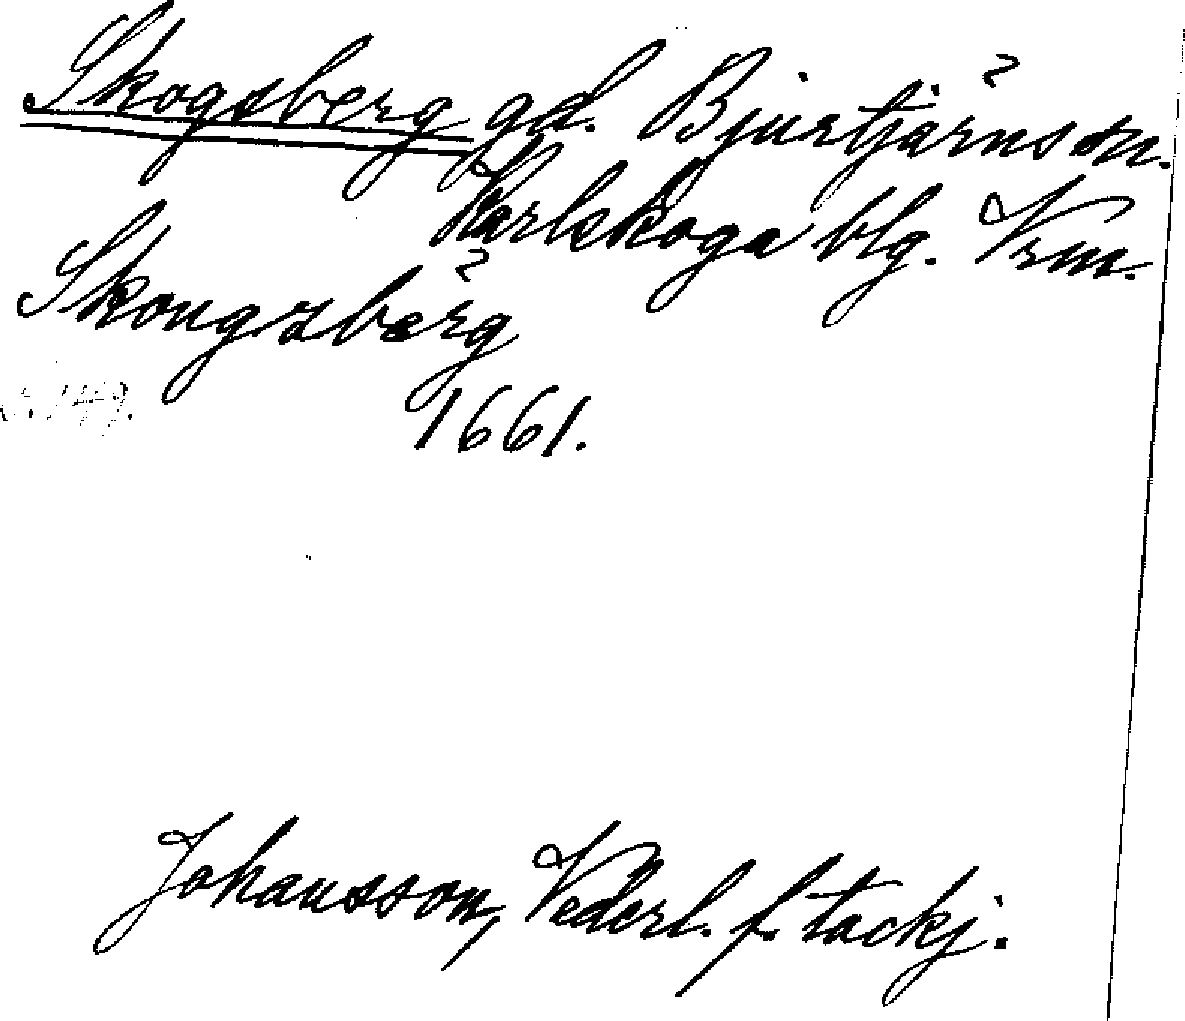 Skogsberg gd. Bjurtjärns sn.
Karlskoga blg. Vrm.
Skougzberg
1661.
Johansson, Vederl. f. tackj.